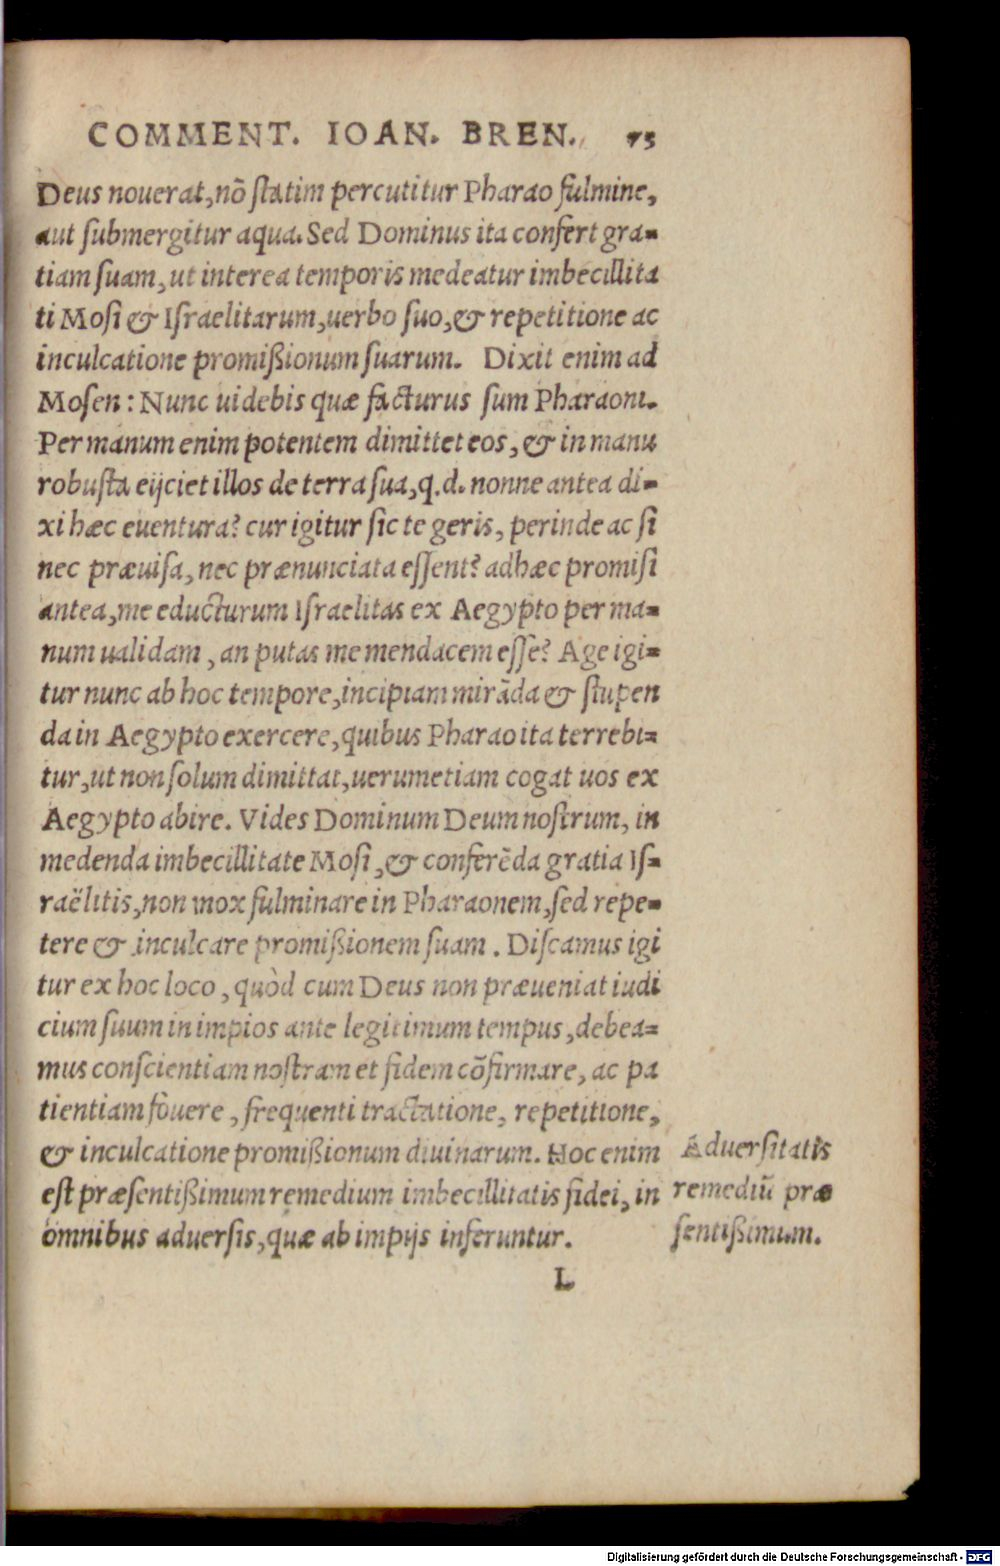 COMMENT. IOAN. BREN. 75
Deus nouerat, nõ statim percutitur Pharao fulmine,
aut submergitur aqua. Sed Dominus ita confert gra-
tiam suam, ut interea temporis medeatur imbecillita
ti Mosi & Israelitarum, uerbo suo, & repetitione ac
inculcatione promißionum suarum. Dixit enim ad
Mosen: Nunc uidebis quæ facturus sum Pharaoni.
Per manum enim potentem dimittet eos, & in manu
robusta eijciet illos de terra sua, q.d. nonne antea di-
xi hæc euentura? cur igitur sic te geris, perinde ac si
nec præuisa, nec prænunciata essent? adhæc promisi
antea, me educturum Israelitas ex Aegypto per ma-
num ualidam, an putas me mendacem esse? Age igi-
tur nunc ab hoc tempore, incipiam mirãda & stupen
da in Aegypto exercere, quibus Pharao ita terrebi-
tur, ut non solum dimittat, uerumetiam cogat uos ex
Aegypto abire. Vides Dominum Deum nostrum, in
medenda imbecillitate Mosi, & conferẽda gratia Is-
raëlitis, non mox fulminare in Pharaonem, sed repe-
tere & inculcare promißionem suam. Discamus igi
tur ex hoc loco, quòd cum Deus non præueniat iudi
cium suum in impios ante legitimum tempus, debea-
mus conscientiam nostram et fidem cõfirmare, ac pa
tientiam fouere, frequenti tractatione, repetitione,
& inculcatione promißionum diuinarum. Hoc enim
est præsentißimum remedium imbecillitatis fidei, in
omnibus aduersis, quæ ab impijs inferuntur.
Aduersitatis
remediũ præ
sentißimum.
L
Digitalisierung gefördert durch die Deutsche Forschungsgemeinschaft - DFG